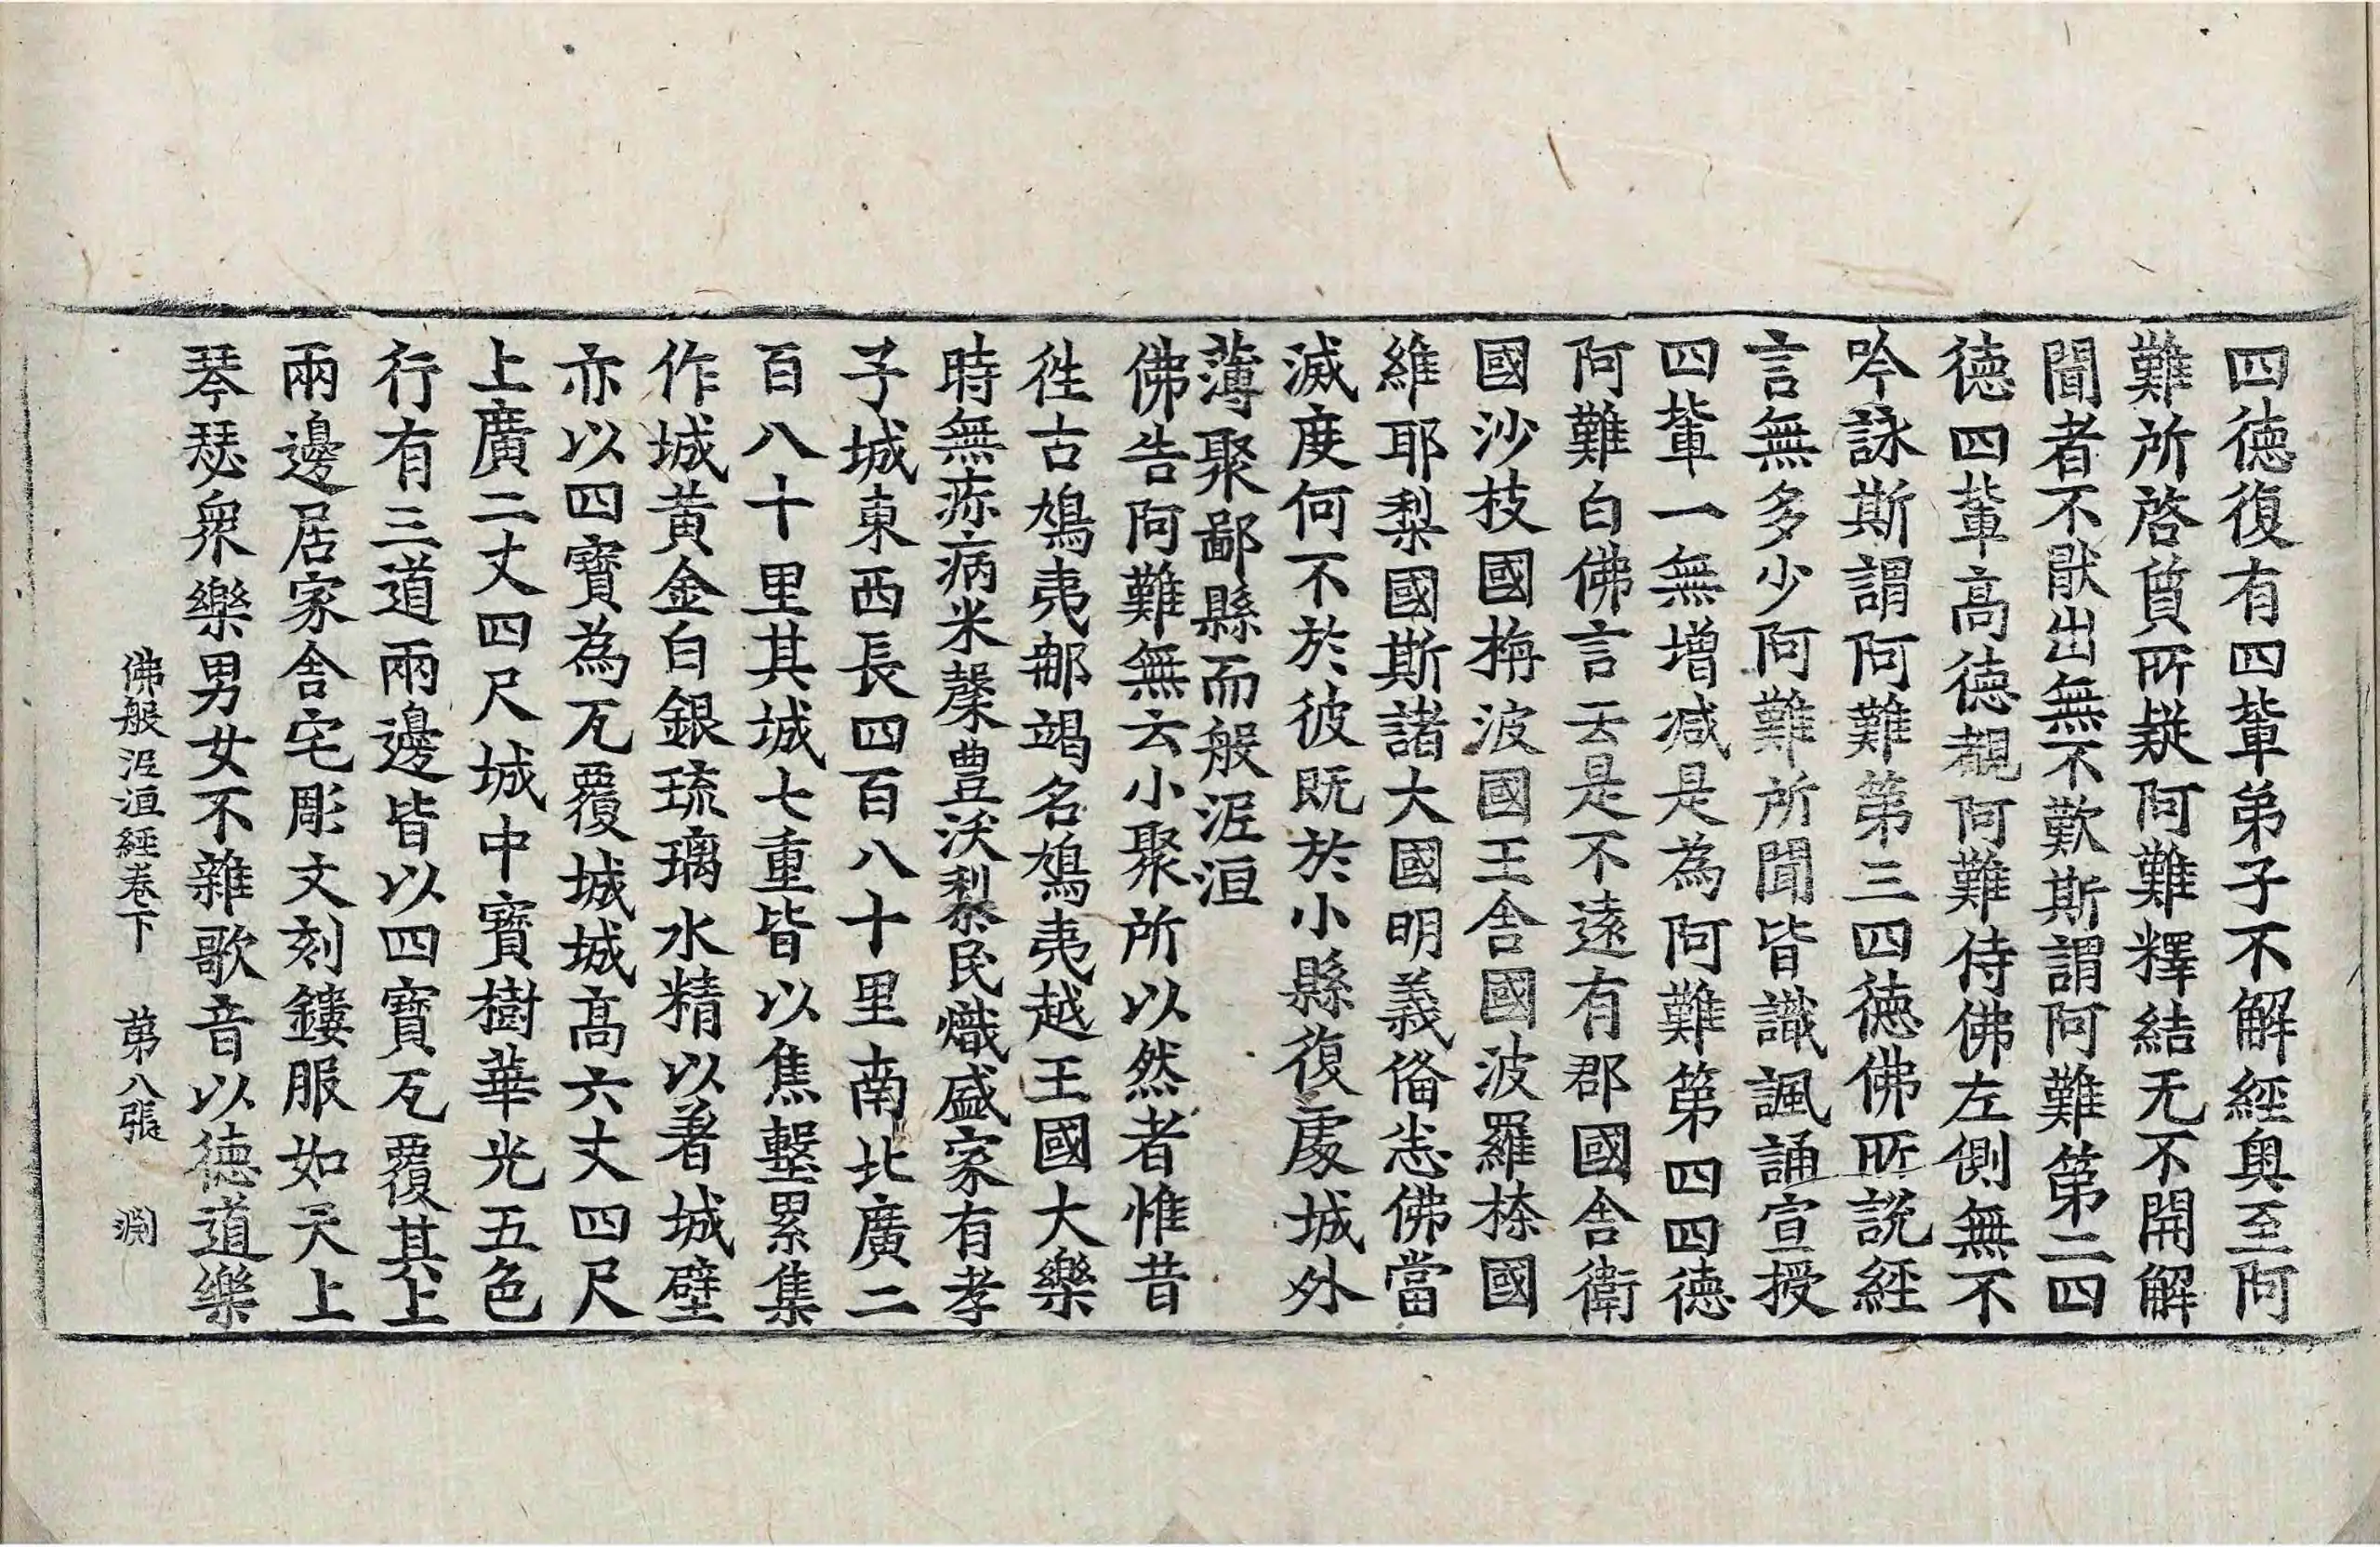 四德復有四輩弟子不解經奧至阿
難所啓質所疑阿難釋結无不開解
聞者不猒出無不歎斯謂阿難第二四
德四輩高德覩阿難侍佛左側無不
吟詠斯謂阿難第三四德佛所說經
言無多少阿難所聞皆識諷誦宣授
四輩一無增減是為阿難第四四德
阿難白佛言云是不遠有郡國舍衛
國沙枝國栴波國王舍國波羅㮈國
維耶梨國斯諸大國明義俻恙佛當
滅度何不於彼旣於小縣復處城外
薄聚鄙縣而般泥洹
佛告阿難無云小聚所以然者惟昔
徃古鳩夷郍竭名鳩夷越王國大樂
時無疢病米糵豊沃黎民熾盛家有孝
子城東西長四百八十里南北廣二
百八十里其城七重皆以焦墼累集
作城黃金白銀琉璃水精以著城壁
亦以四寶為瓦覆城城高六丈四尺
上廣二丈四尺城中寶樹華光五色
行有三道兩邊皆以四寶瓦覆其上
兩邊居家舍宅彫文刻鏤服如天上
琴瑟衆樂男女不雜歌音以德道樂
佛般泥洹經卷下 第八張 渕